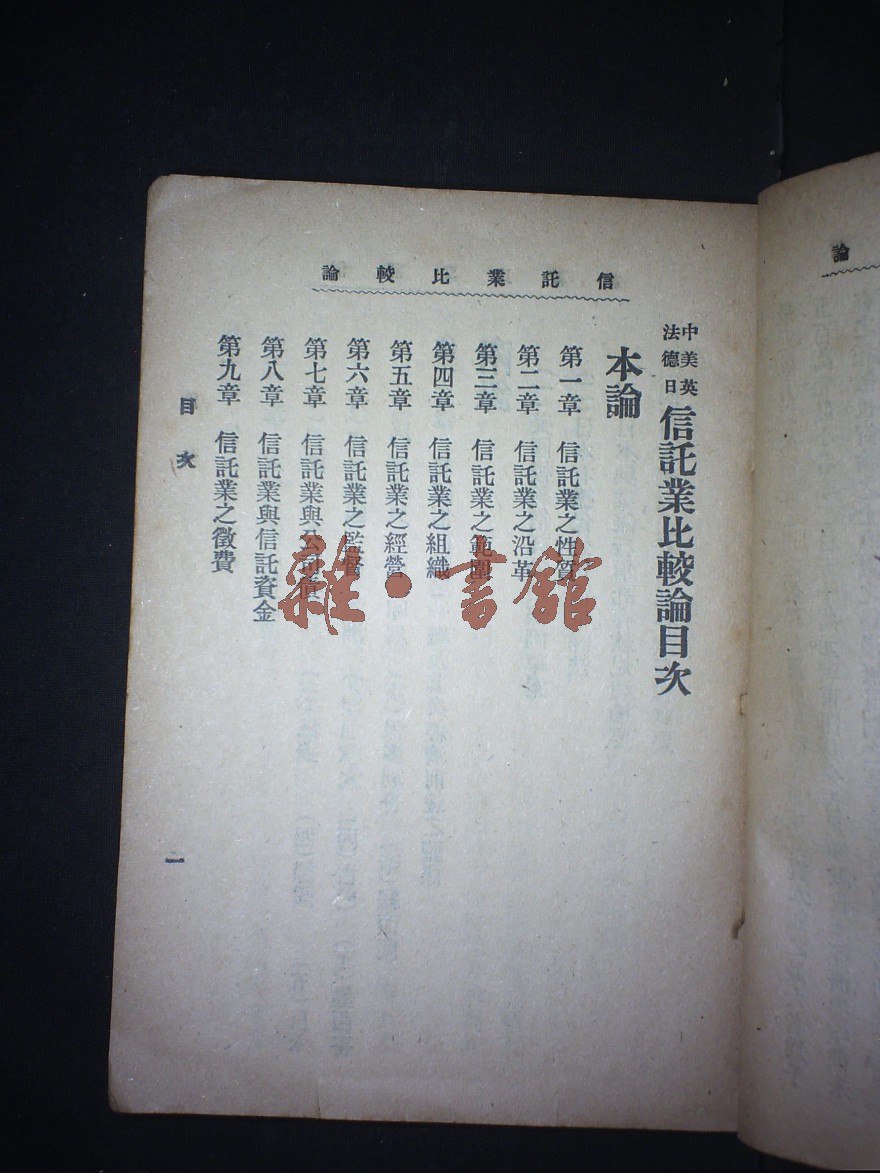 信託業比較論
中美英
法德日
信託業比較論目次
本論
第一章 信託業之性質
第二章 信託業之沿革
第三章 信託業之範圍
第四章 信託業之組織
第五章 信託業之經營
第六章 信託業之監督
第七章 信託業與公司債
第八章 信託業與信託資金
第九章 信託業之徵費
目次
一
論
雜·書館